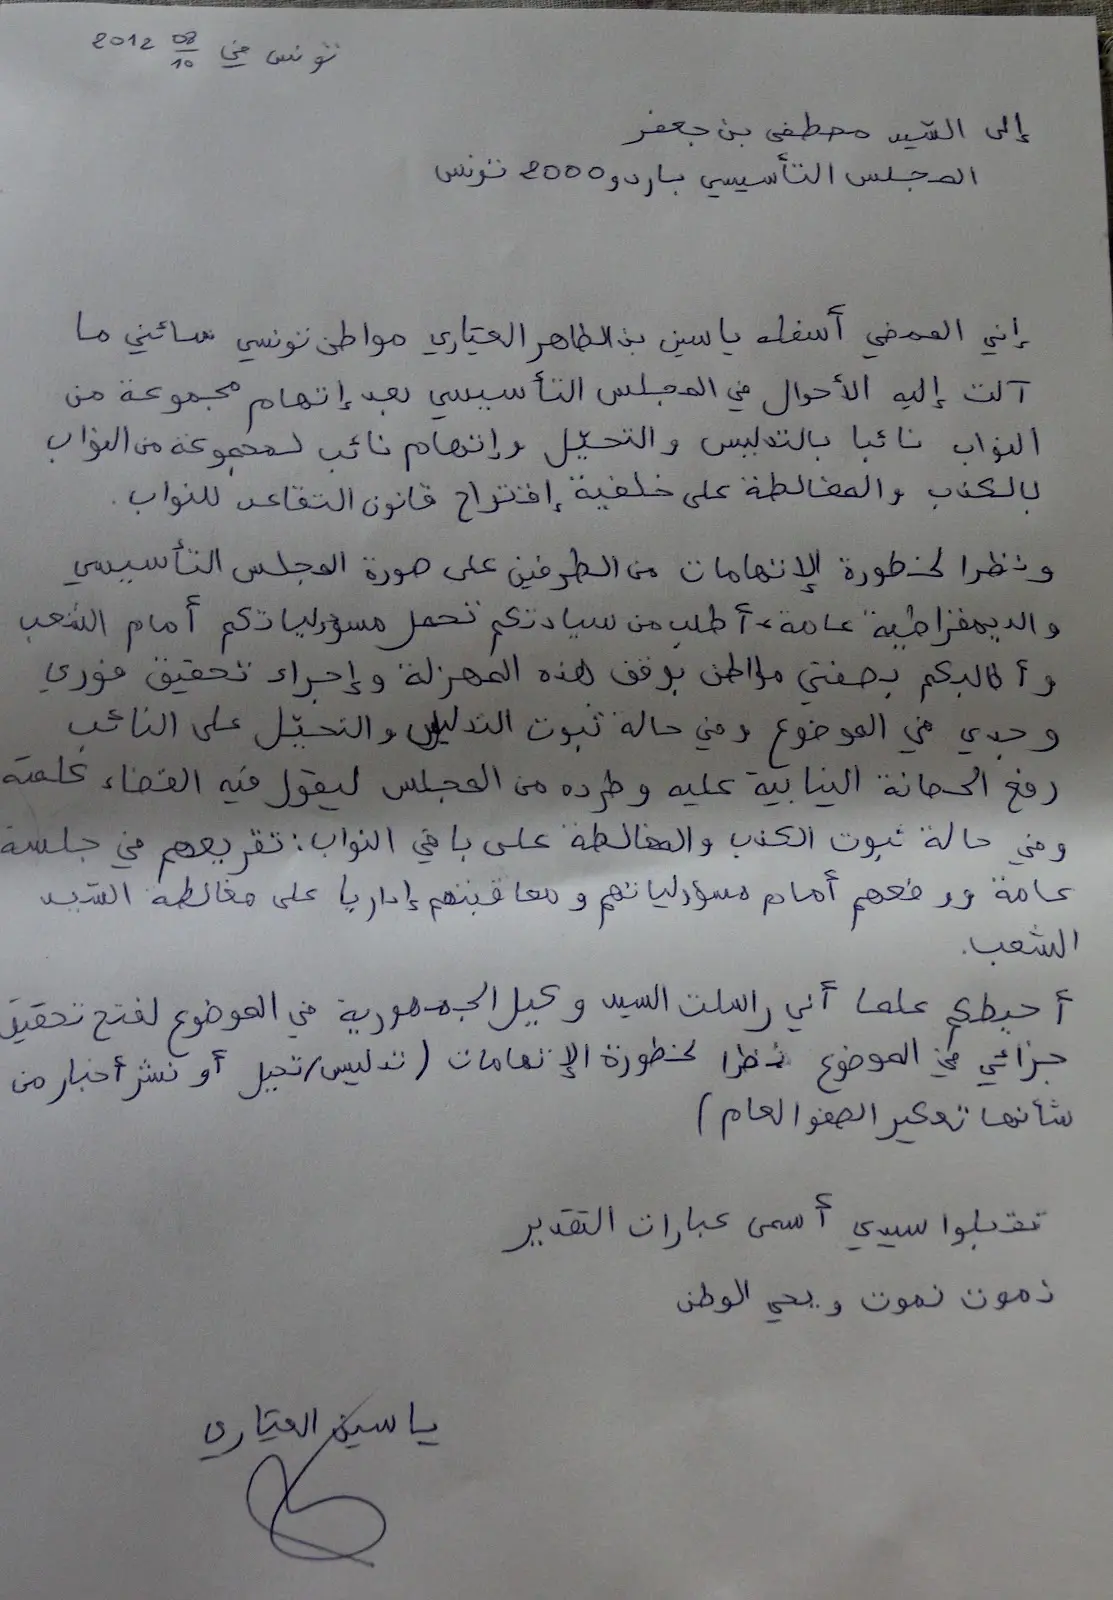 تونس في 08/10 2012
إلى السّيد مصطفى بن جعفر
المجلس التأسيسي باردو 2000 تونس
إني الممضي أسفله ياسين بن الطاهر العيّاري مواطن تونسي سائني ما
آلت إليه الأحوال في المجلس التأسيسي بعد إتهام مجموعة من
النواب نائبا بالتدليس والتحيّل وإتهام نائب لمجموعة من النواب
بالكذب والمغالطة على خلفية إقتراح قانون التقاعد للنواب.
ونظرا لخطورة الإتهامات من الطرفين على صورة المجلس التأسيسي
والديمقراطية عامة، أطلب من سيادتكم تحمل مسؤولياتكم أمام الشعب
وأطالبكم بصفتي مواطن بوقف هذه المهزلة وإجراء تحقيق فوري
وجدي في الموضوع وفي حالة ثبوت التدليس والتحيّل على النائب
رفع الحصانة النيابية عليه وطرده من المجلس ليقول فيه القضاء كلمته
وفي حالة ثبوت الكذب والمغالطة على باقي النواب: تقريعهم في جلسة
عامة ووضعهم أمام مسؤولياتهم ومعاقبتهم إداريا على مغالطة السّيد
الشعب.
أحيطكم علما أني راسلت السيد وكيل الجمهورية في الموضوع لفتح تحقيق
جزائي في الموضوع نظرا لخطورة الإتهامات (تدليس/تحيل أو نشر أخبار من
شأنها تعكير الصفو العام)
تقبلوا سيدي أسمى عبارات التقدير
نموت نموت ويحي الوطن
ياسين العيّاري